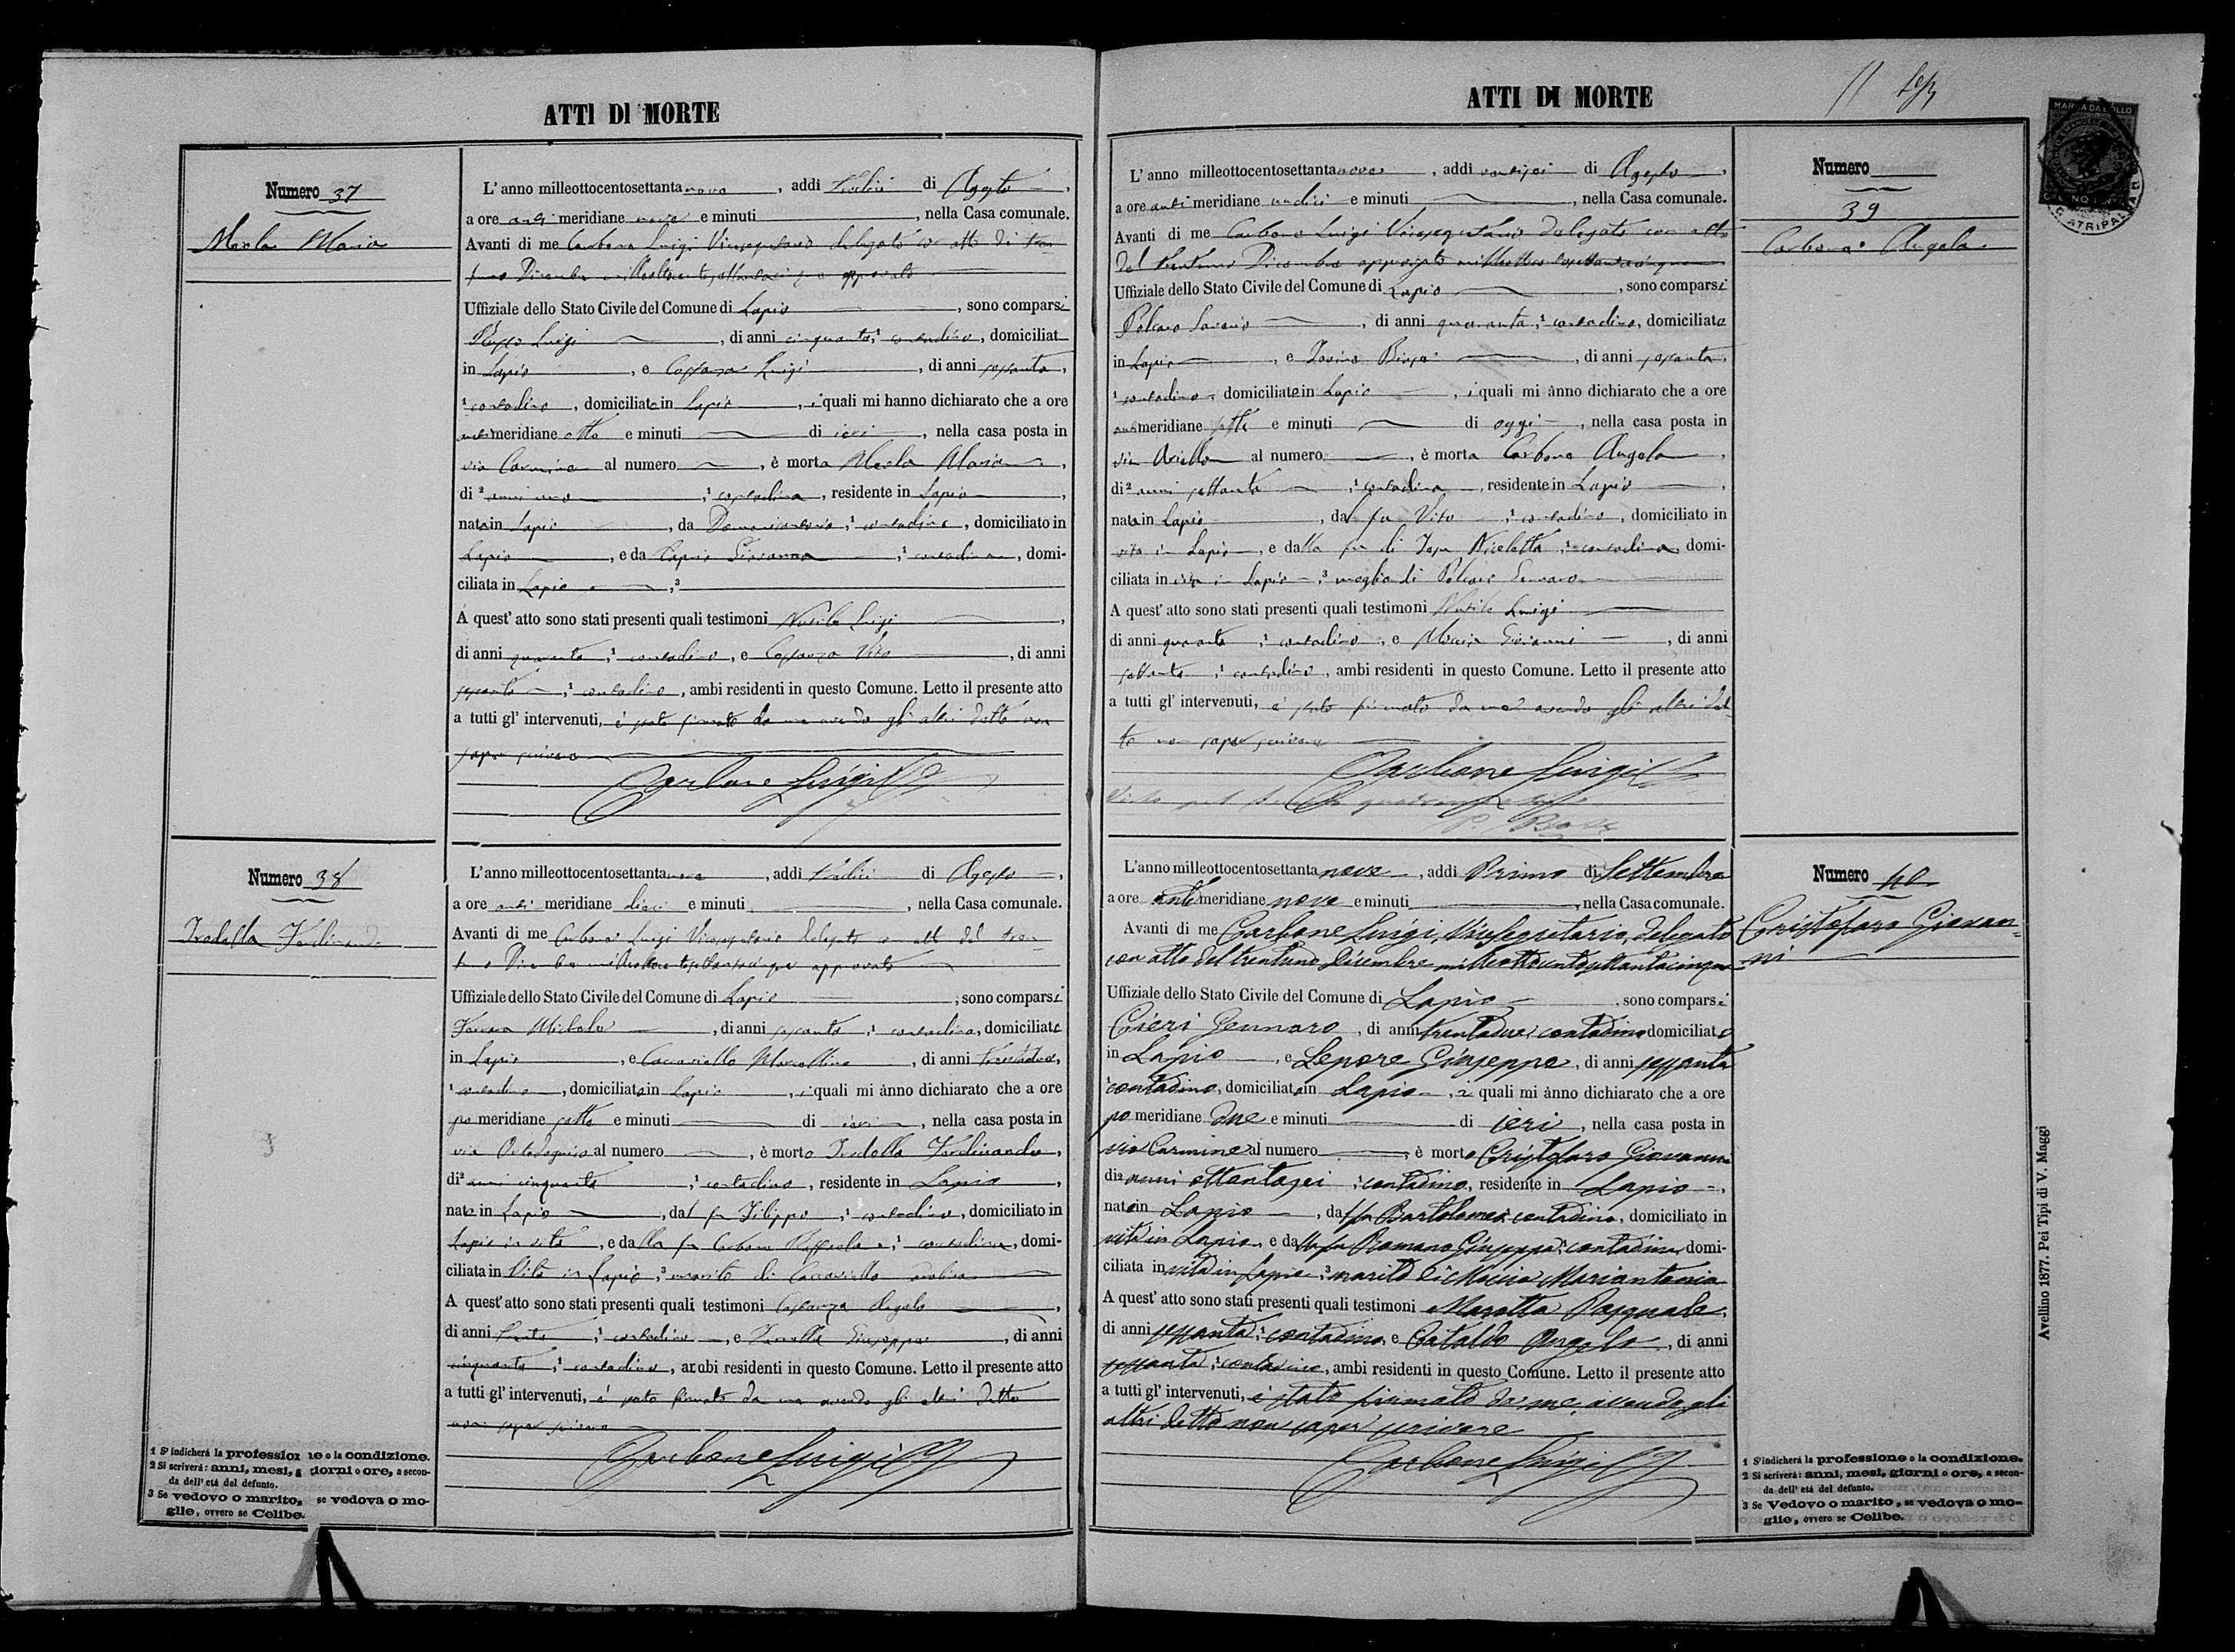 ATTI DI MORTE
Numero 37
Merla Maria
L' anno milleottocentosettanta nove, addi tredici di Agosto,
a ore anti meridiane nove e minuti , nella Casa comunale.
Avanti di me Carbone Luigi Vicesegretario delegato con atto di tren-
tuno Dicembre milleottocentosettantacinque approvato
Uffiziale dello Stato Civile del Comune di Lapio, sono comparsi
Luigi, di anni cinquanta, ¹ contadino, domiciliat
in Lapio, e Luigi, di anni sessanta,
¹ contadino, domiciliato in Lapio, i quali mi hanno dichiarato che a ore
anti meridiane otto e minuti di ieri, nella casa posta in
via Carmine al numero , è morta Merla Maria,
di ² anni uno, ¹ contadina, residente in Lapio,
nata in Lapio, da , ¹ contadino, domiciliato in
Lapio, e da Giovanna, ¹ contadina, domi-
ciliata in Lapio, ³
A quest' atto sono stati presenti quali testimoni Luigi,
di anni quaranta, ¹ contadino, e Vito, di anni
sessanta, ¹ contadino, ambi residenti in questo Comune. Letto il presente atto
a tutti gl' intervenuti, è stato firmato da me avendo gli altri detto non
saper scrivere
Carbone Luigi
Numero 38
Iredella Ferdinando
L'anno milleottocentosettanta nove, addi tredici di Agosto,
a ore anti meridiane dieci e minuti , nella Casa comunale.
Avanti di me Carbone Luigi Vicesegretario delegato con atto del tren-
tuno Dicembre milleottocentosettantacinque approvato
Uffiziale dello Stato Civile del Comune di Lapio, sono comparsi
Michele, di anni sessanta, ¹ contadino, domiciliato
in Lapio, e Caccaviello Marcellino, di anni trentadue,
¹ contadino, domiciliato in Lapio, i quali mi ànno dichiarato che a ore
po meridiane sette e minuti di ieri, nella casa posta in
via al numero , è morto Iredella Ferdinando,
di ² anni cinquanta, ¹ contadino, residente in Lapio,
nato in Lapio, dal fu Filippo, ¹ contadino, domiciliato in
Lapio in vita, e dalla fu Carbone Raffaela, ¹ contadina, domi-
ciliata in Vita in Lapio, ³ marito di Caccaviello
A quest' atto sono stati presenti quali testimoni Angelo,
di anni trenta, ¹ contadino, e Giuseppe, di anni
cinquanta, ¹ contadino, ambi residenti in questo Comune. Letto il presente atto
a tutti gl' intervenuti, è stato firmato da me avendo gli altri detto
non saper scrivere
Carbone Luigi
1 S' indicherà la professione o la condizione.
2 Si scriverà: anni, mesi, giorni o ore, a secon-
da dell' età del defunto.
3 Se vedovo o marito, se vedova o mo-
glie, ovvero se Celibe.
ATTI DI MORTE
MARCA DA BOLLO
ATRIPALDA
Numero
39
Carbone Angela
L' anno milleottocentosettanta nove, addi di Agosto,
a ore anti meridiane undici e minuti , nella Casa comunale.
Avanti di me Carbone Luigi Vicesegretario delegato con atto
del trentuno Dicembre approvato milleottocentosettantacinque
Uffiziale dello Stato Civile del Comune di Lapio, sono comparsi
Polcaro Saverio, di anni quaranta, ¹ contadino, domiciliato
in Lapio, e Biagio, di anni sessanta,
¹ contadino, domiciliato in Lapio, i quali mi ànno dichiarato che a ore
anti meridiane sette e minuti di oggi, nella casa posta in
via Ariella al numero , è morta Carbone Angela,
di ² anni settanta, ¹ contadina, residente in Lapio,
nata in Lapio, dal fu Vito, ¹ contadino, domiciliato in
vita in Lapio, e dalla fu di Nicoletta, ¹ contadina, domi-
ciliata in vita in Lapio, ³ moglie di Polcaro Gennaro
A quest' atto sono stati presenti quali testimoni Luigi
di anni quaranta, ¹ contadino, e Moccia Giovanni, di anni
settanta, ¹ contadino, ambi residenti in questo Comune. Letto il presente atto
a tutti gl' intervenuti, è stato firmato da me avendo gli altri det-
to non saper scrivere
Carbone Luigi
Numero 40
Cristofaro Giovan=
ni
L'anno milleottocentosettanta nove, addi Primo di Settembre
a ore anti meridiane nove e minuti , nella Casa comunale.
Avanti di me Carbone Luigi, Vicesegretario, delegato
con atto del trentuno Dicembre milleottocentosettantacinque
Uffiziale dello Stato Civile del Comune di Lapio, sono comparsi
Cieri Gennaro, di anni trentadue, contadino domiciliato
in Lapio, e Lepore Giuseppe, di anni sessanta
¹ contadino, domiciliato in Lapio, i quali mi ànno dichiarato che a ore
po meridiane due e minuti di ieri, nella casa posta in
via Carmine al numero , è morto Cristofaro Giovanni
di ² anni ottantasei, ¹ contadino, residente in Lapio,
nato in Lapio, dal fu Bartolomeo, contadino, domiciliato in
vita in Lapio, e dalla fu Romano Giuseppa, ¹ contadina, domi-
ciliata in vita in Lapio, ³ marito di Moccia Mariantonia
A quest' atto sono stati presenti quali testimoni Marotta Pasquale,
di anni sessanta, ¹ contadino, e Cataldo Angelo, di anni
sessanta, ¹ contadino, ambi residenti in questo Comune. Letto il presente atto
a tutti gl' intervenuti, è stato firmato da me, avendo gli
altri detto non saper scrivere
Carbone Luigi
1 S' indicherà la professione o la condizione.
2 Si scriverà: anni, mesi, giorni o ore, a secon-
da dell' età del defunto.
3 Se Vedovo o marito, se vedova o mo-
glie, ovvero se Celibe.
Avellino 1877. Pei Tipi di V. Maggi